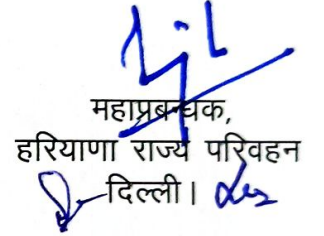 महाप्रबन्धक,
हरियाणा राज्य परिवहन
दिल्ली।